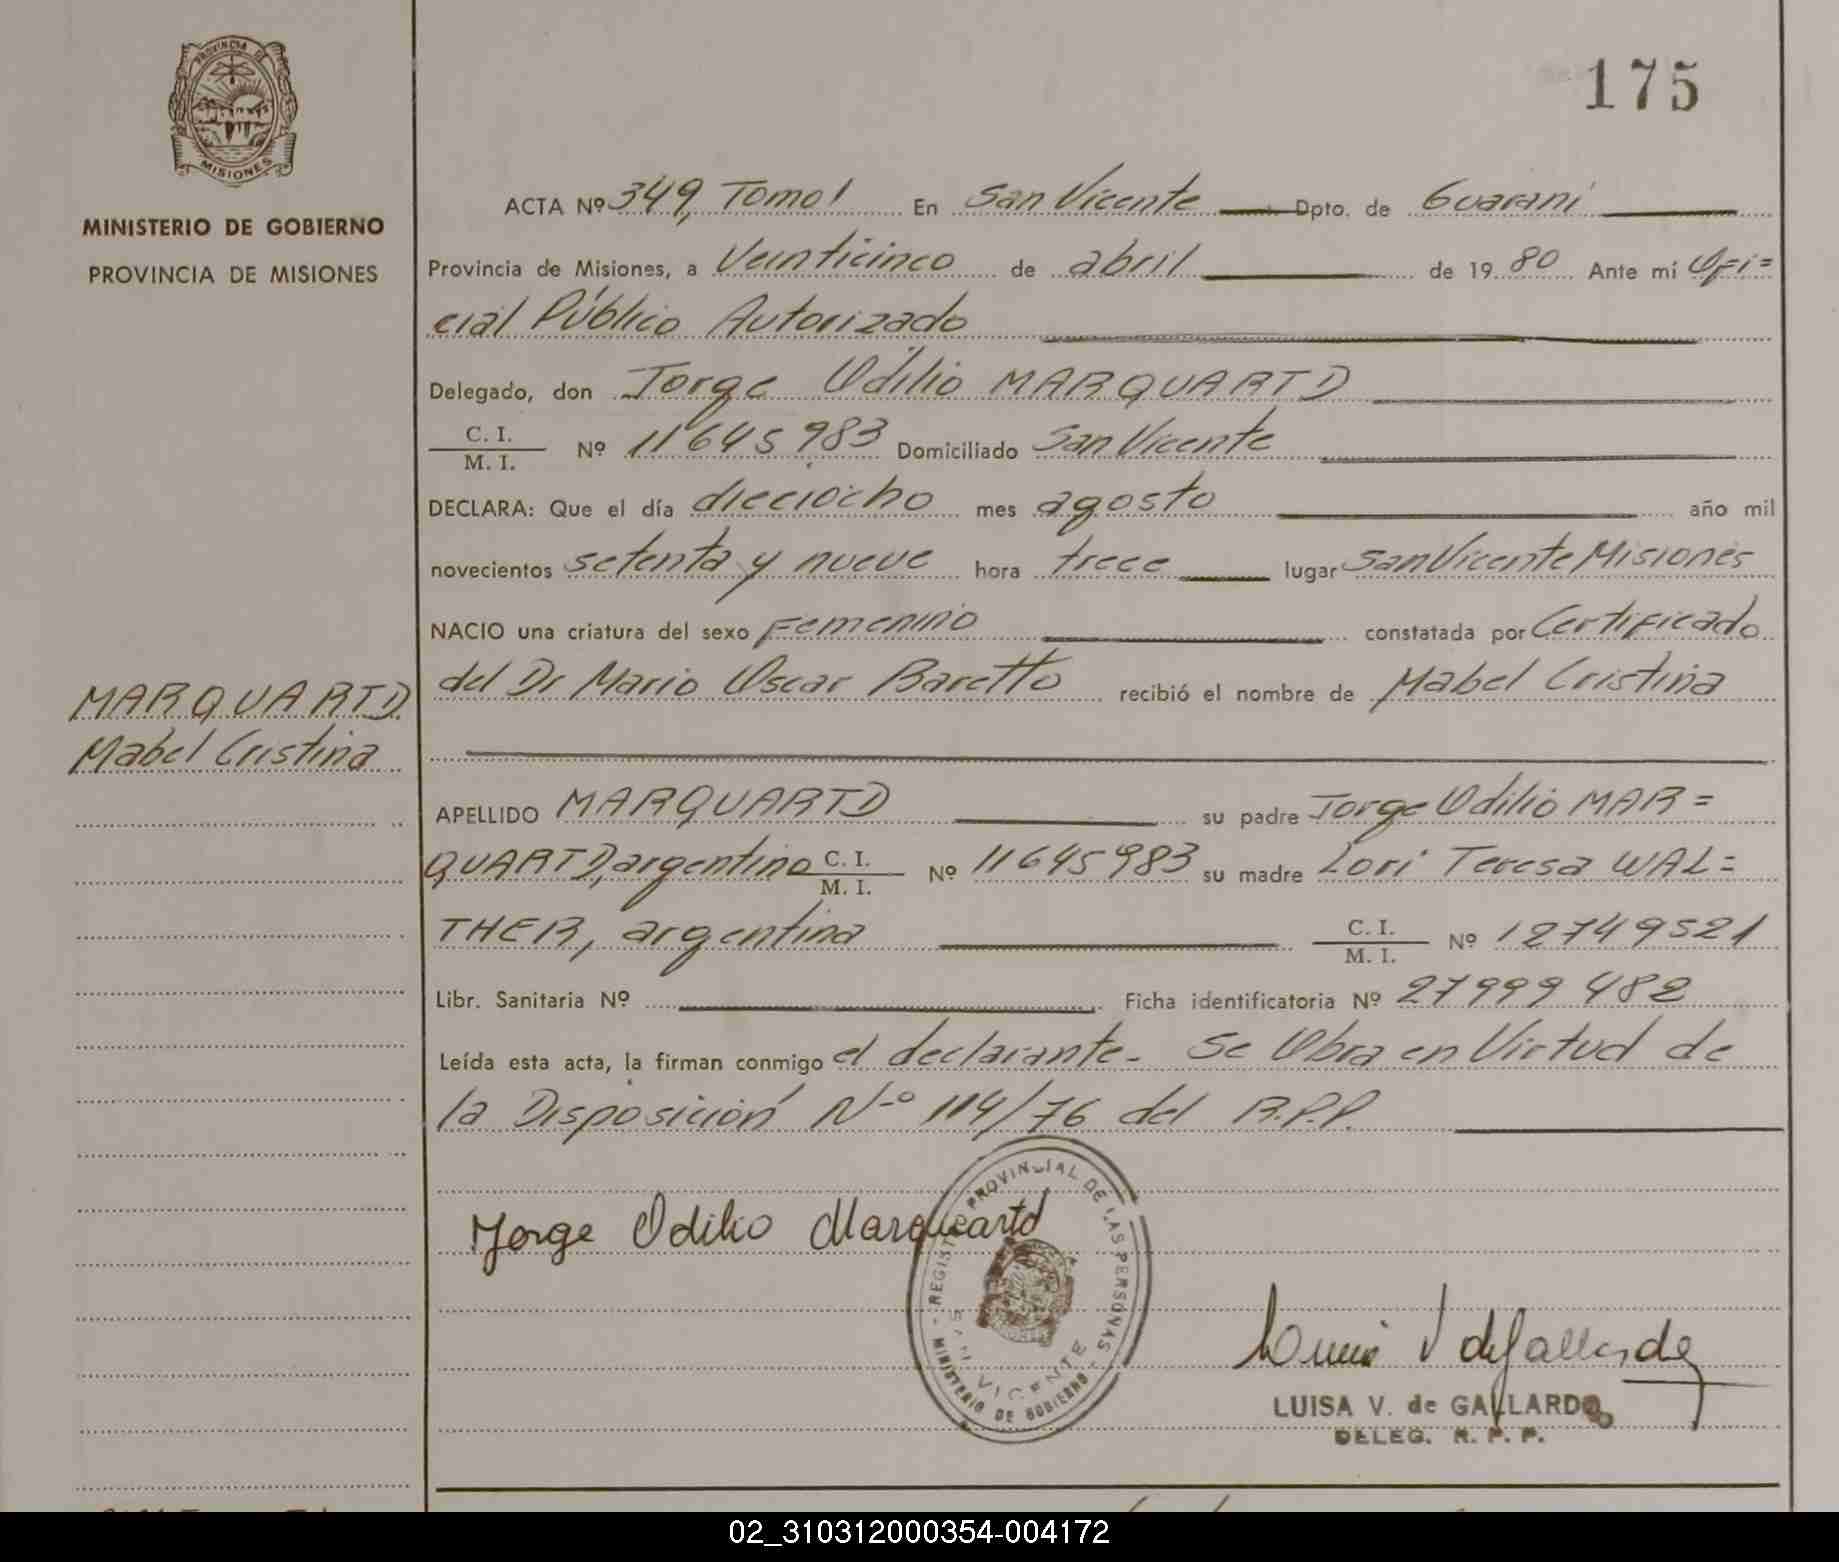 175
PROVINCIA DE
MISIONES
MINISTERIO DE GOBIERNO
PROVINCIA DE MISIONES
MARQUARTD
Mabel Cristina
ACTA Nº 349, Tomo 1 En San Vicente Dpto. de Guaraní
Provincia de Misiones, a Veinticinco de abril de 1980 Ante mí Ofi=
cial Público Autorizado
Delegado, don Jorge Odilio MARQUARTD
C. I.
M. I. Nº 11645983 Domiciliado San Vicente
DECLARA: Que el día dieciocho mes agosto año mil
novecientos setenta y nueve hora trece lugar San Vicente Misiones
NACIO una criatura del sexo Femenino constatada por Certificado
del Dr Mario Oscar Baretto recibió el nombre de Mabel Cristina
APELLIDO MARQUARTD su padre Jorge Odilio MAR=
QUARTD, argentino C. I.
M. I. Nº 11645983 su madre Lori Teresa WAL=
THER, argentina C. I.
M. I. Nº 12749521
Libr. Sanitaria Nº Ficha identificatoria Nº 27999482
Leída esta acta, la firman conmigo el declarante- Se Obra en Virtud de
la Disposición Nº 114/76 del R.P.P.
Jorge Odilio Marqueartd
REGISTRO PROVINCIAL DE LAS PERSONAS
SAN VICENTE
MINISTERIO DE GOBIERNO
LUISA V. de GALLARDO
DELEG. R. P. P.
02_310312000354-004172